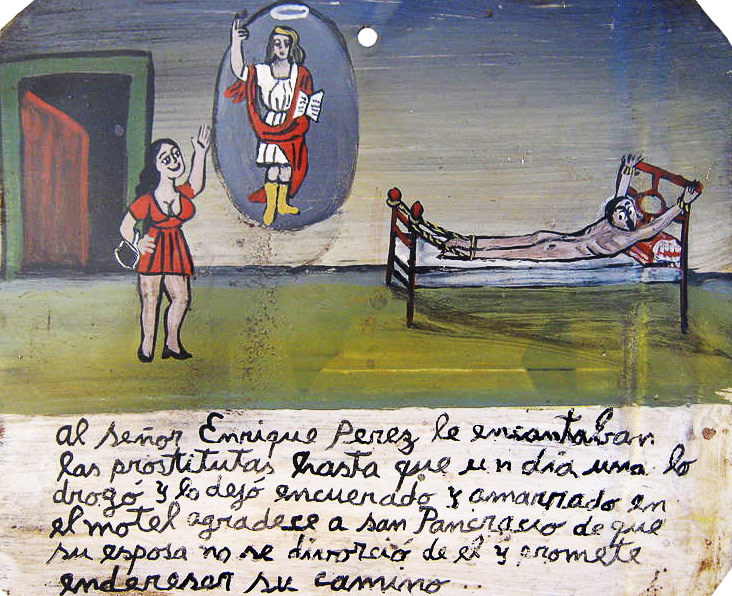 al señor Enrique Perez le encantaban
las prostitutas hasta que un dia una lo
drogó y lo dejó encuerado y amarrado en
el motel agradece a san Pancracio de que
su esposa no se divorció de el y promete
enderesar su camino...